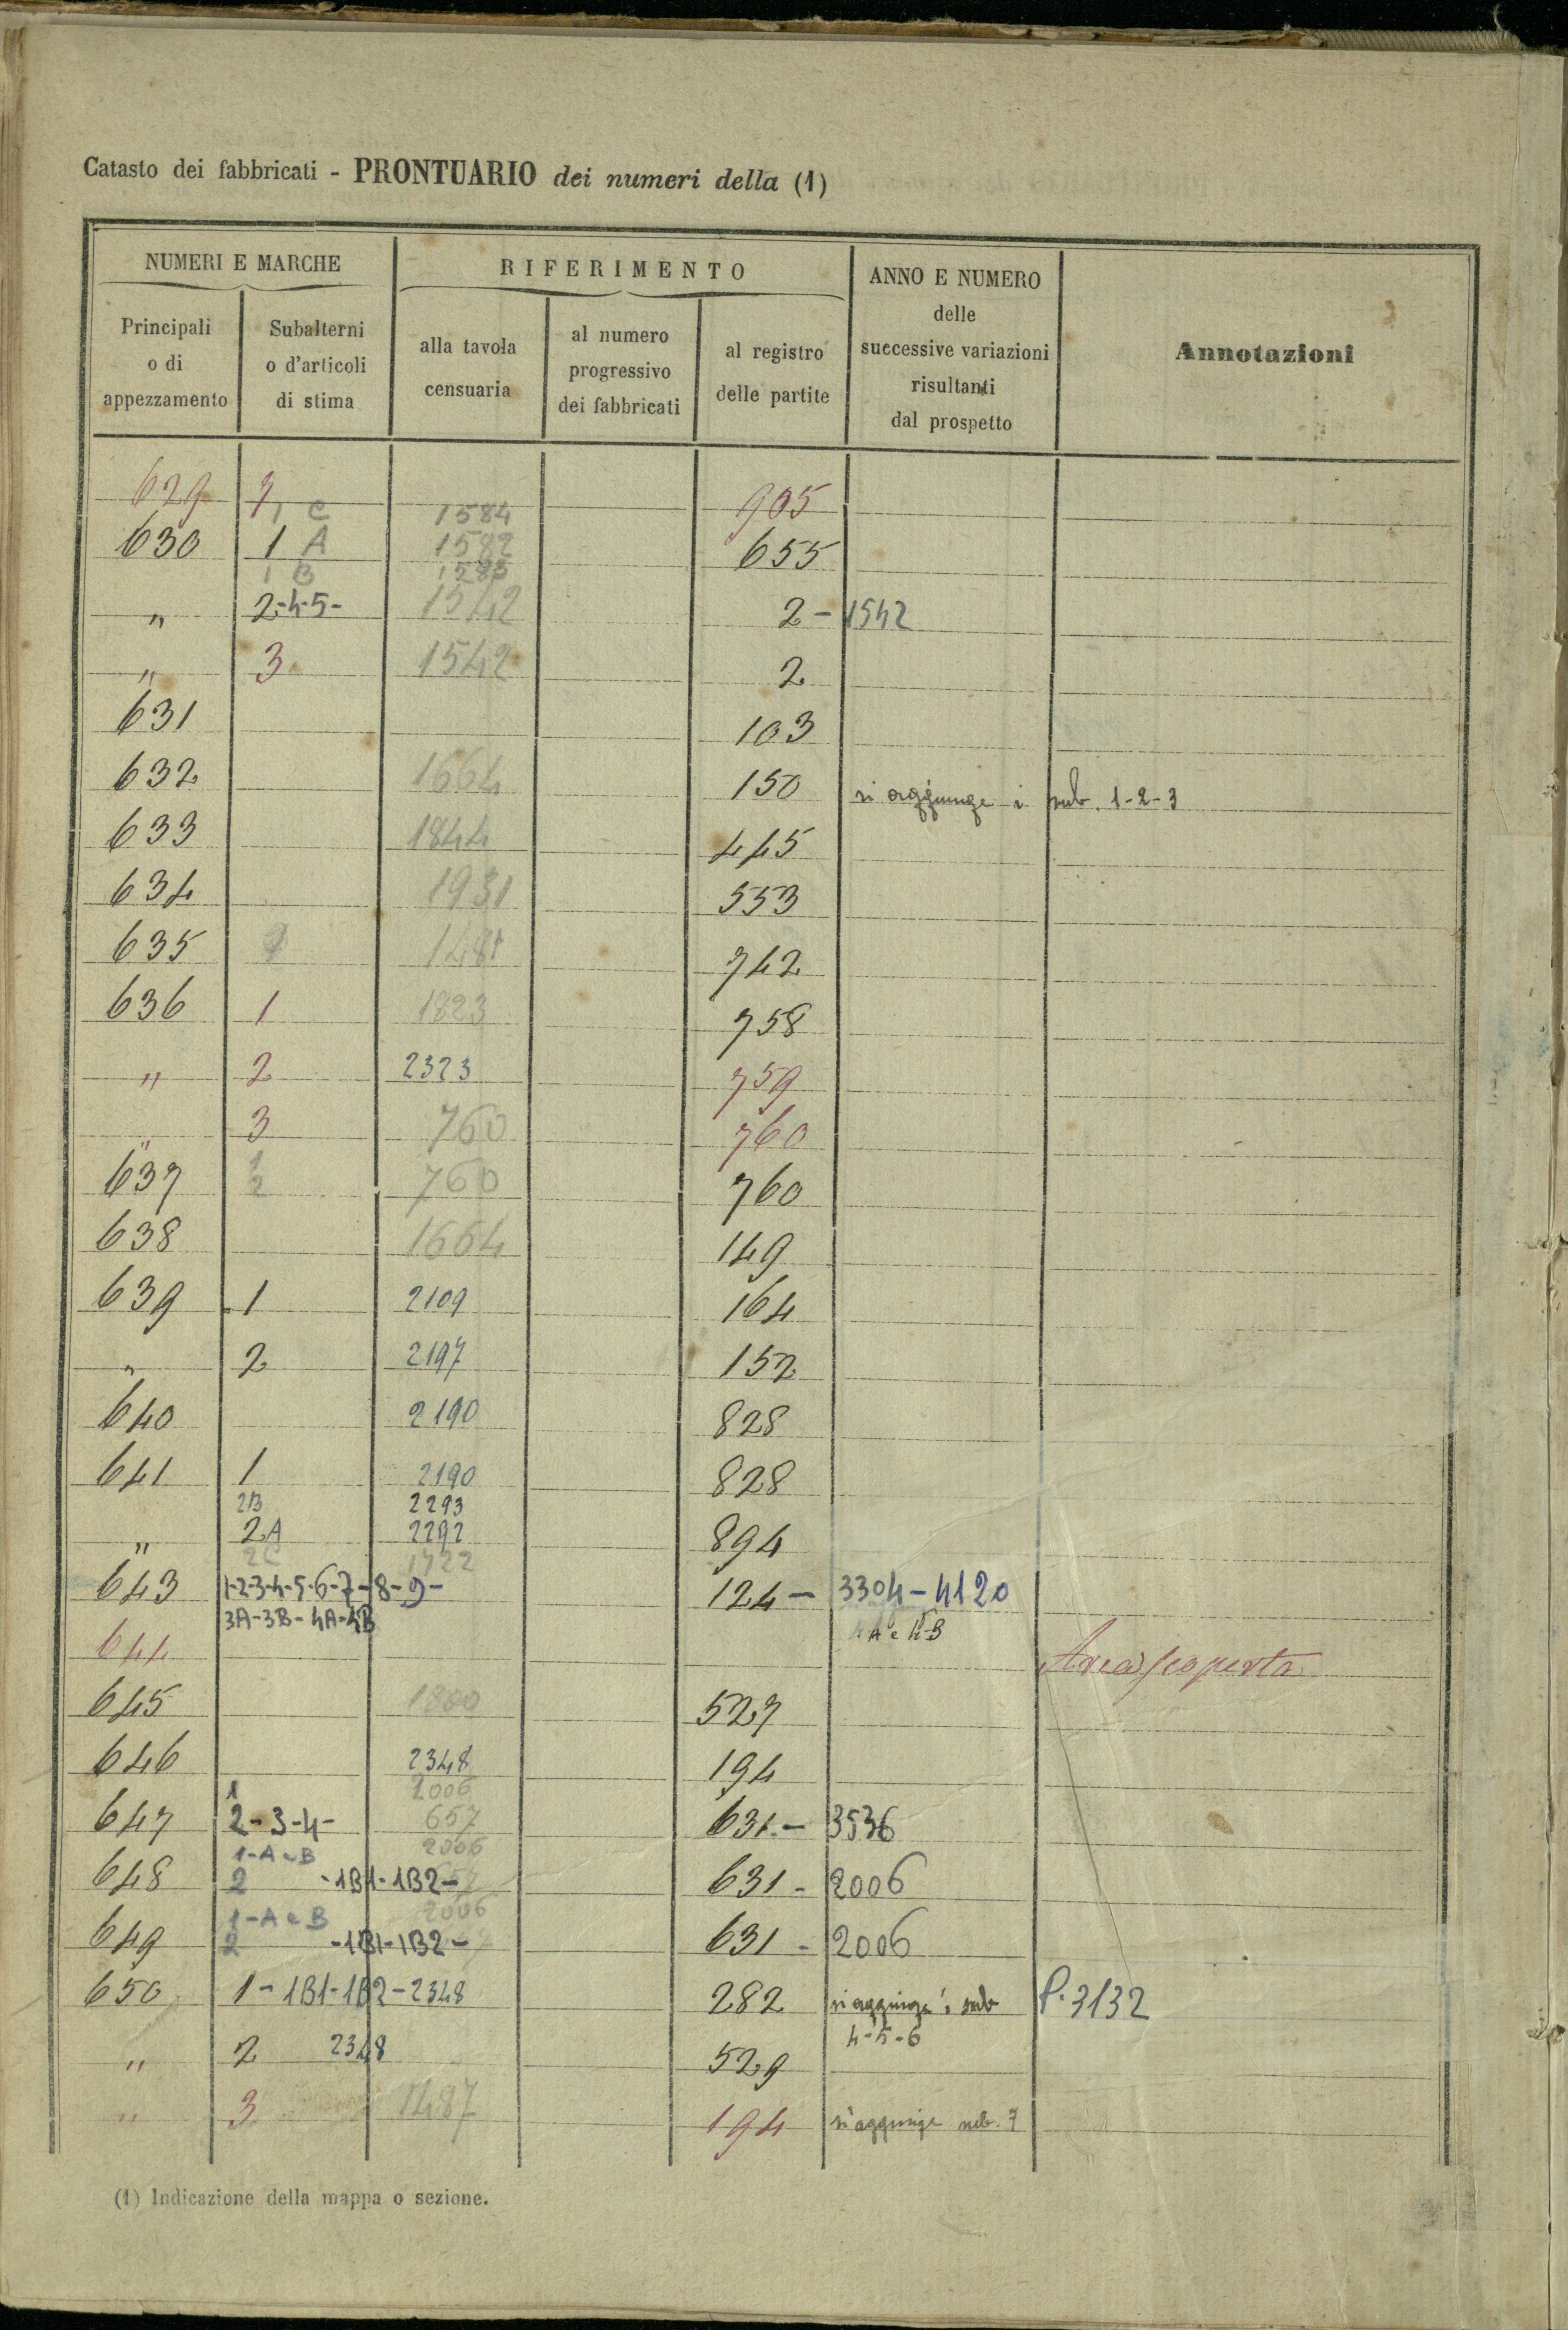 Catasto dei fabbricati - PRONTUARIO dei numeri della (1)
NUMERI E MARCHE
RIFERIMENTO
ANNO E NUMERO
delle
successive variazioni
risultanti
dal prospetto
Annotazioni
Principali
o di
appezzamento
Subalterni
o d'articoli
di stima
alla tavola
censuaria
al numero
progressivo
dei fabbricati
al registro
delle partite
629 905
1 C 1584
630 1 A 1582 655
1 B
" 2-4-5- 1542 2 - 1542
" 3 1542 2
631 103
632 1664 150 si aggiunge i sub. 1-2-3
633 1844 445
634 1931 553
635 742
636 1 1823 758
" 2 2323 759
" 3 760 760
1
637 2 760 760
638 1664 149
639 1 2109 164
" 2 2197 152
640 2190 828
641 1 2190 828
2B 2293
" 2A 2292 894
2C 1722
643 1-2-3-4-5-6-7-8-9- 124 - 3304-4120
3A-3B-4A-4B 4A e 4B
644 Area scoperta
645 1800 527
646 2348 194
1 2006
647 2-3-4- 657 631 - 3536
1-A e B 2006
648 2 -1B1-1B2- 631 - 2006
1-A e B 2006
649 2 -1B1-1B2- 631 - 2006
650 1-1B1-1B2-2348 282 si aggiunge i sub P. 3132
4-5-6
" 2 2348 529
" 3 1487 194 si aggiunge sub. 7
(1) Indicazione della mappa o sezione.